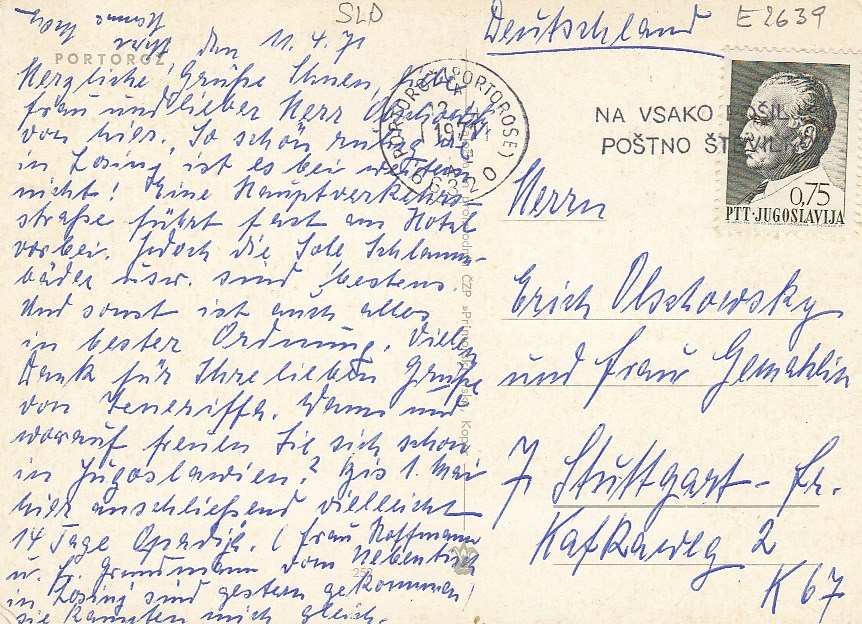 SLO
E 2639
PORTOROŽ
den 11. 4. 71
Herzliche Grüße Ihnen, liebe
Frau und lieber Herr Olschowsky
von hier. So schön ruhig als
in Losinj ist es bei weitem
nicht! Eine Hauptverkehrs-
straße führt fast am Hotel
vorbei. Jedoch die Sole Schlamm-
bäder usw. sind bestens.
Und sonst ist auch alles
in bester Ordnung. Vielen
Dank für Ihre lieben Grüße
von Teneriffa. Wann und
worauf freuen Sie sich schon
in Jugoslawien? Bis 1. Mai
hier anschließend vielleicht
14 Tage Opadija. (Frau Hoffmann
u. Fr. Grundmann vom Nebentisch
in Losinj sind gestern gekommen)
sie kannten mich gleich.
PORTOROŽ (PORTOROSE)
1971
66320
NA VSAKO POŠILJ
POŠTNO ŠTEVILK
0,75
PTT·JUGOSLAVIJA
ČZP »Primorski tisk«, Koper
Deutschland
Herrn
Erich Olschowsky
und Frau Gemahlin
7 Stuttgart - Fr.
Kafkaweg 2
K 67